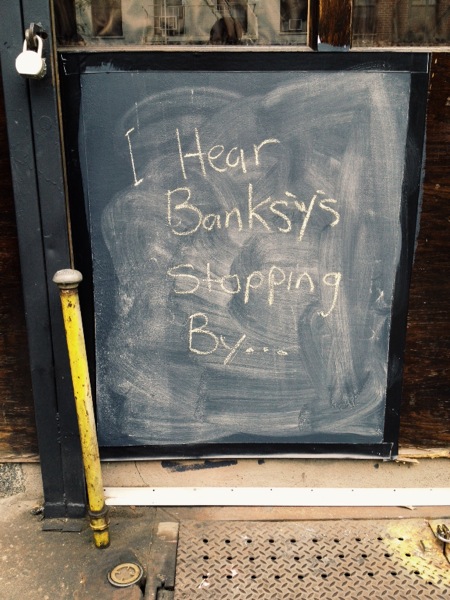 I Hear
Banks'y's
Stopping
By...